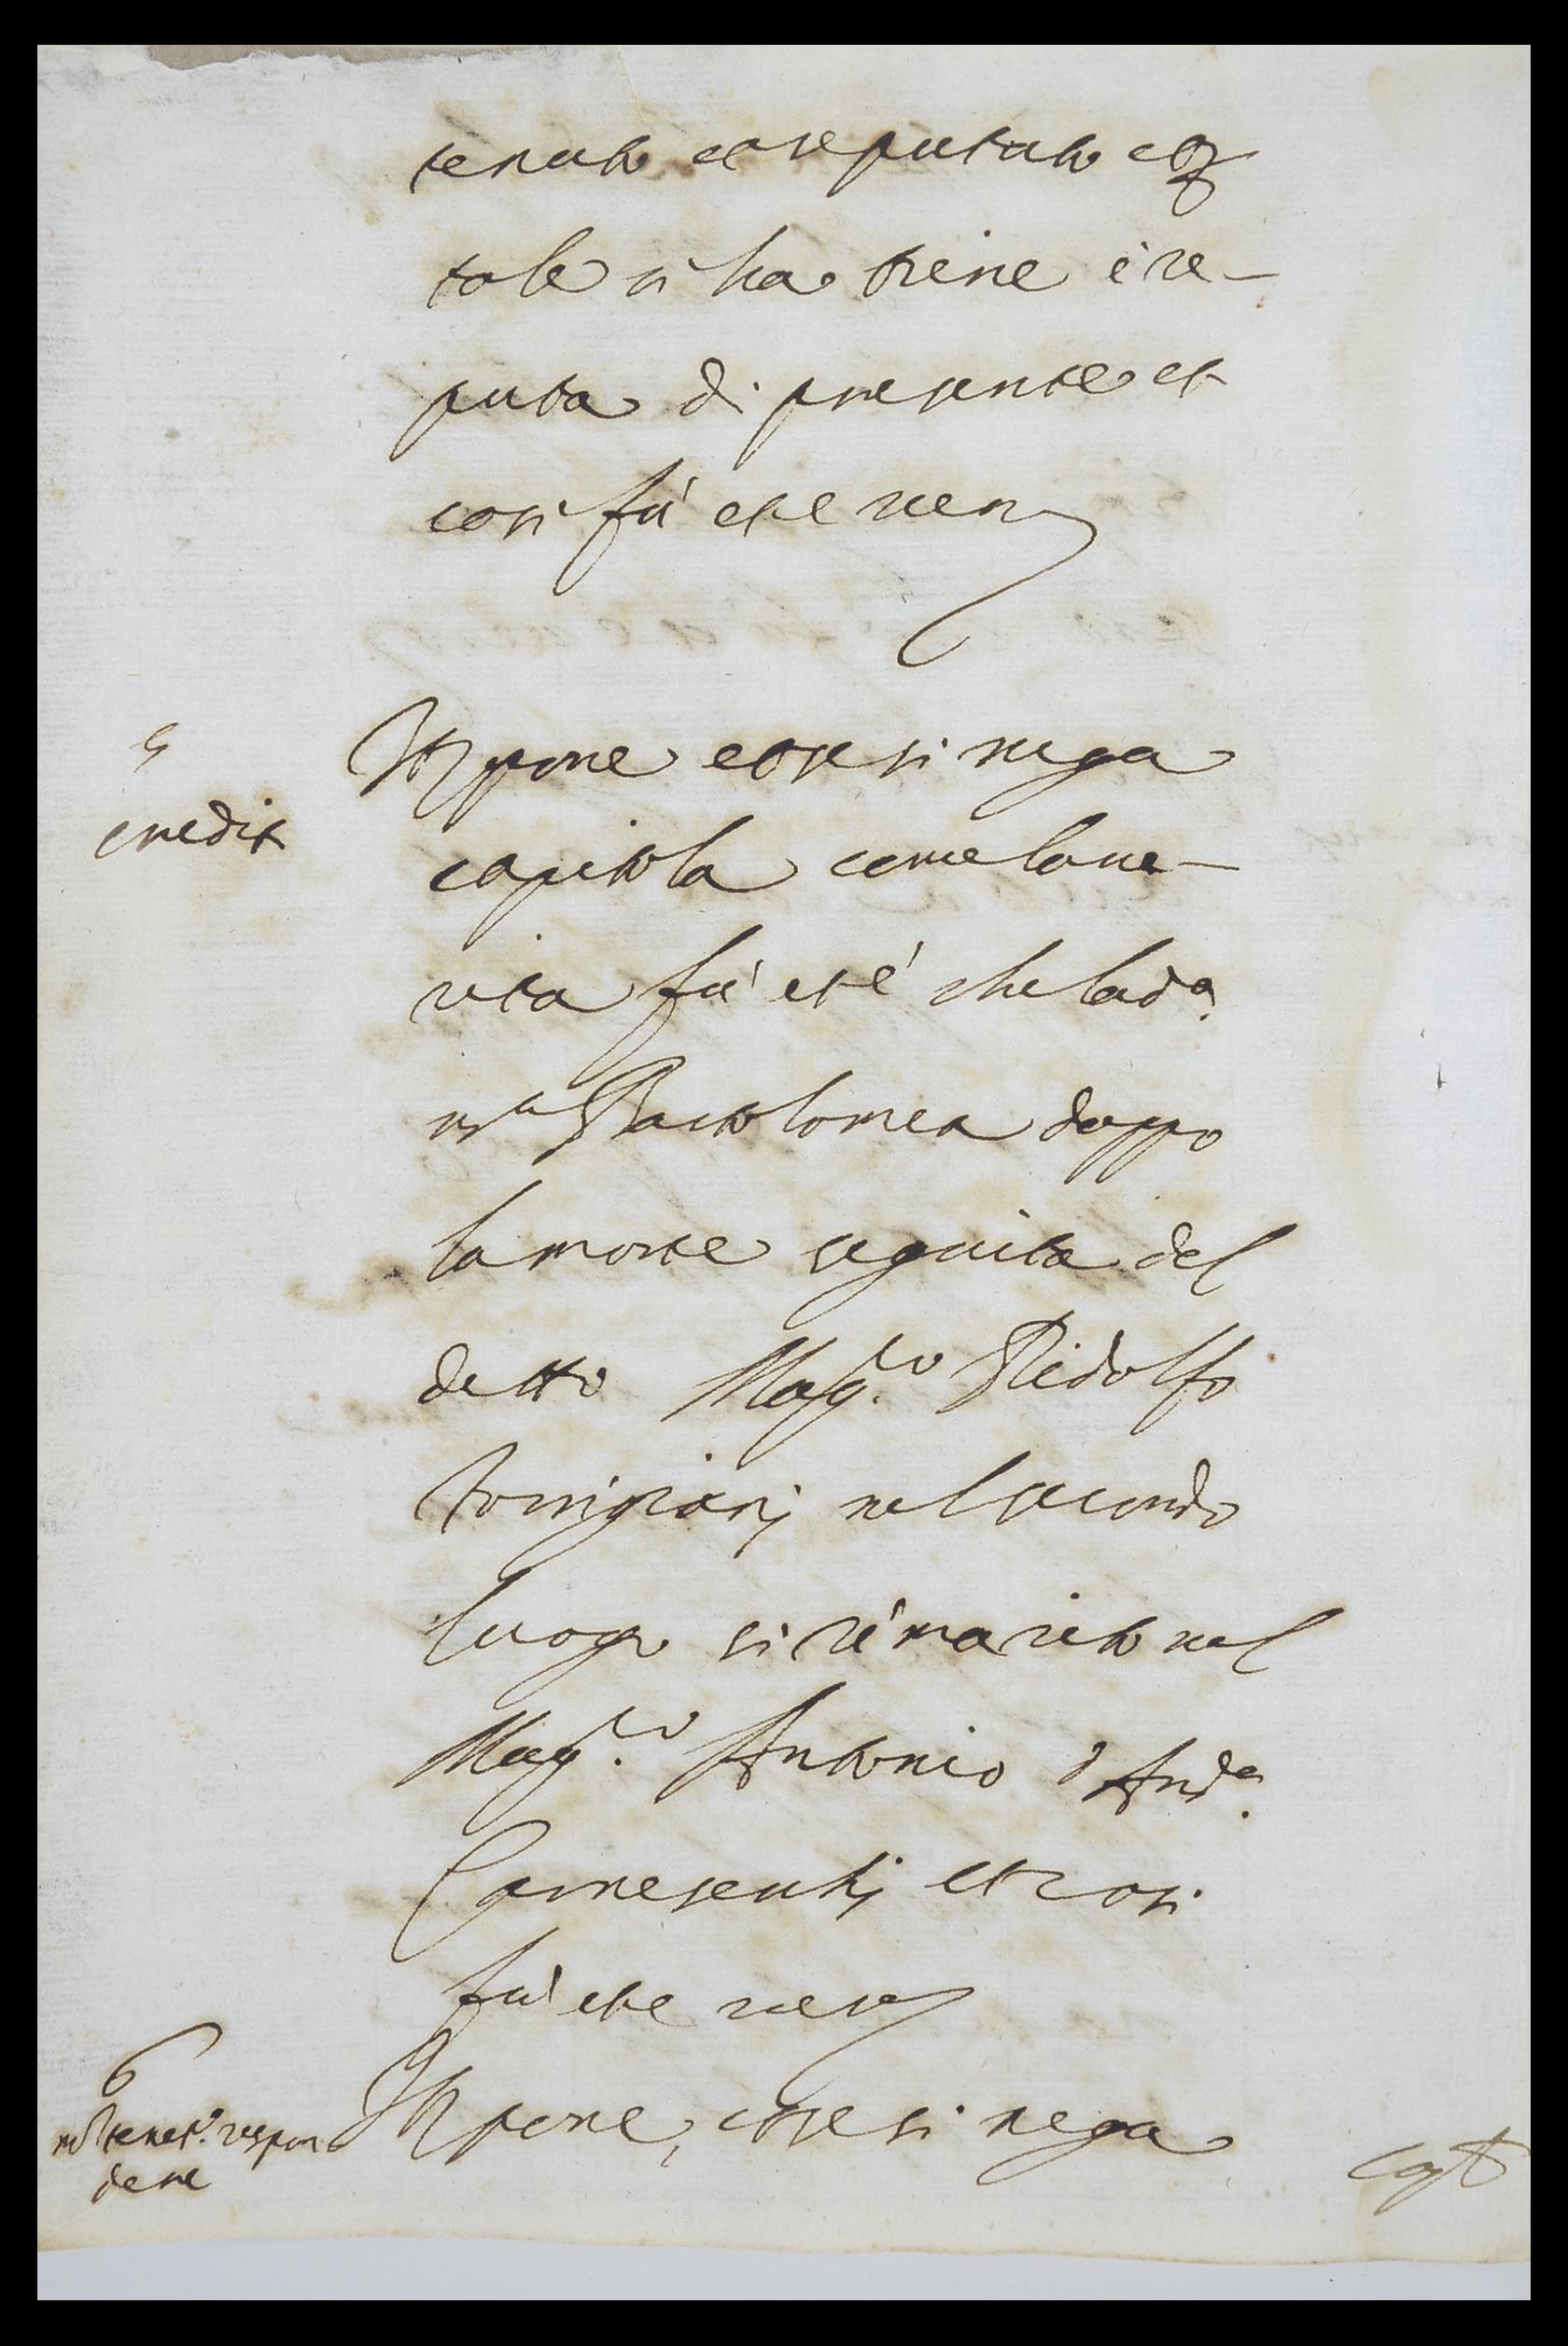 tenuto et reputato et p
tale si ha tiene è re-
puta di presente et
cosi fù et è vero
5
credit
Itt pone et se si nega
capitola come la ve-
rità fù et è che la da.
m.a Bartolomea doppo
la morte seguita del
detto Mag.co Ridolfo
Torrigiani nel secondo
luogo si rimaritò nel
Mag.co Antonio d'And.a
Carnesenchi et cosi
fù et è vero
6
non tenet.r respon
dere
Itt pone, et se si nega
capt